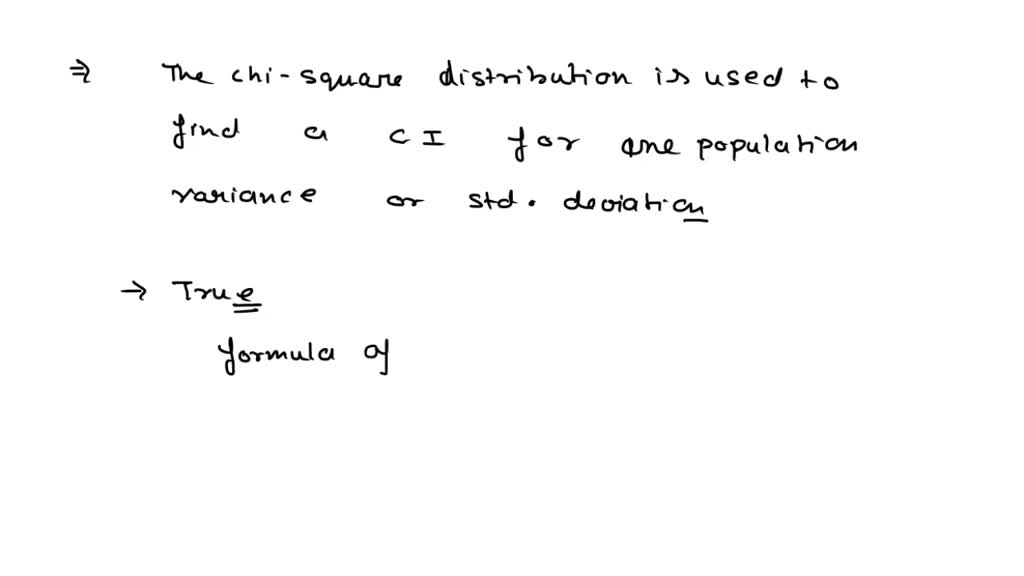 ⇒ The chi-square distribution is used to
find a CI for one population
variance or std. deviation
→ True
formula of